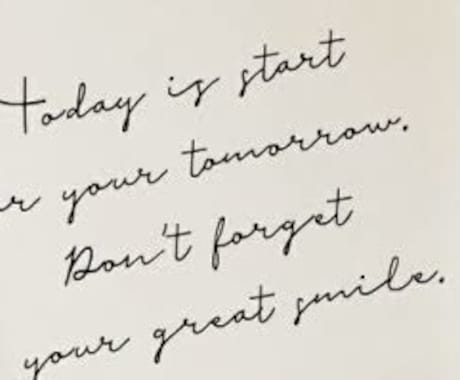 Today is start
r your tomorrow.
Don't forget
your great smile.